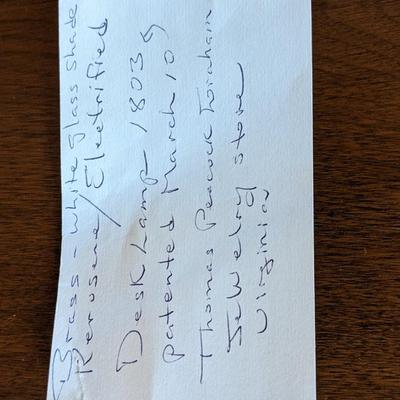 Brass - white glass shade
Kerosene/Electrified
Desk Lamp 1803
patented March 10
Thomas Peacock
Jewelry store
Virginia